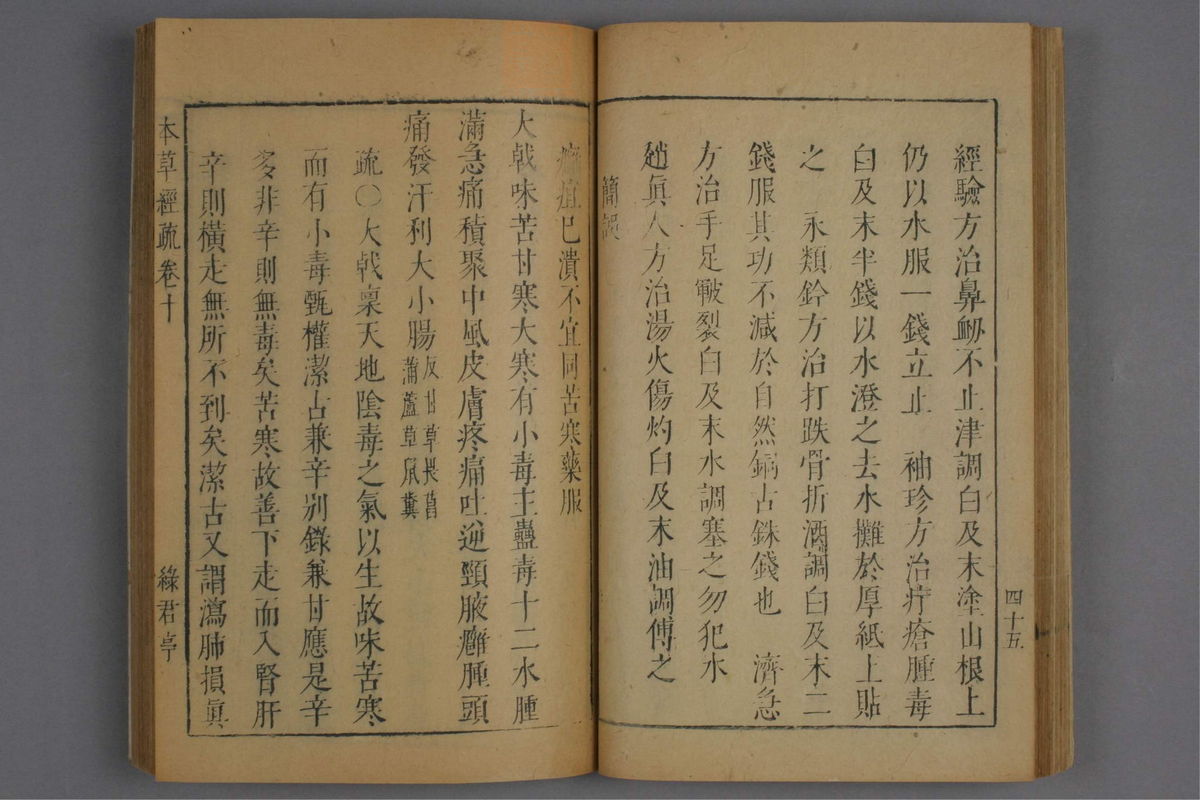 經驗方治鼻衂不止津調白及末塗山根上
仍以水服一錢立止　袖珍方治疔瘡腫毒
白及末半錢以水澄之去水攤於厚紙上貼
之　永類鈐方治打跌骨折酒調白及末二
錢服其功不減於自然銅古銖錢也　濟急
方治手足皸裂白及末水調塞之勿犯水
趙眞人方治湯火傷灼白及末油調傅之
簡誤
四十五
癰疽已潰不宜同苦寒藥服
大戟味苦甘寒大寒有小毒主蠱毒十二水腫
滿急痛積聚中風皮膚疼痛吐逆頸腋癰腫頭
痛發汗利大小腸反甘草畏菖
蒲蘆草鼠糞
疏〇大戟稟天地陰毒之氣以生故味苦寒
而有小毒甄權潔古兼辛別錄兼甘應是辛
多非辛則無毒矣苦寒故善下走而入腎肝
辛則橫走無所不到矣潔古又謂瀉肺損眞
本草經疏卷十
綠君亭